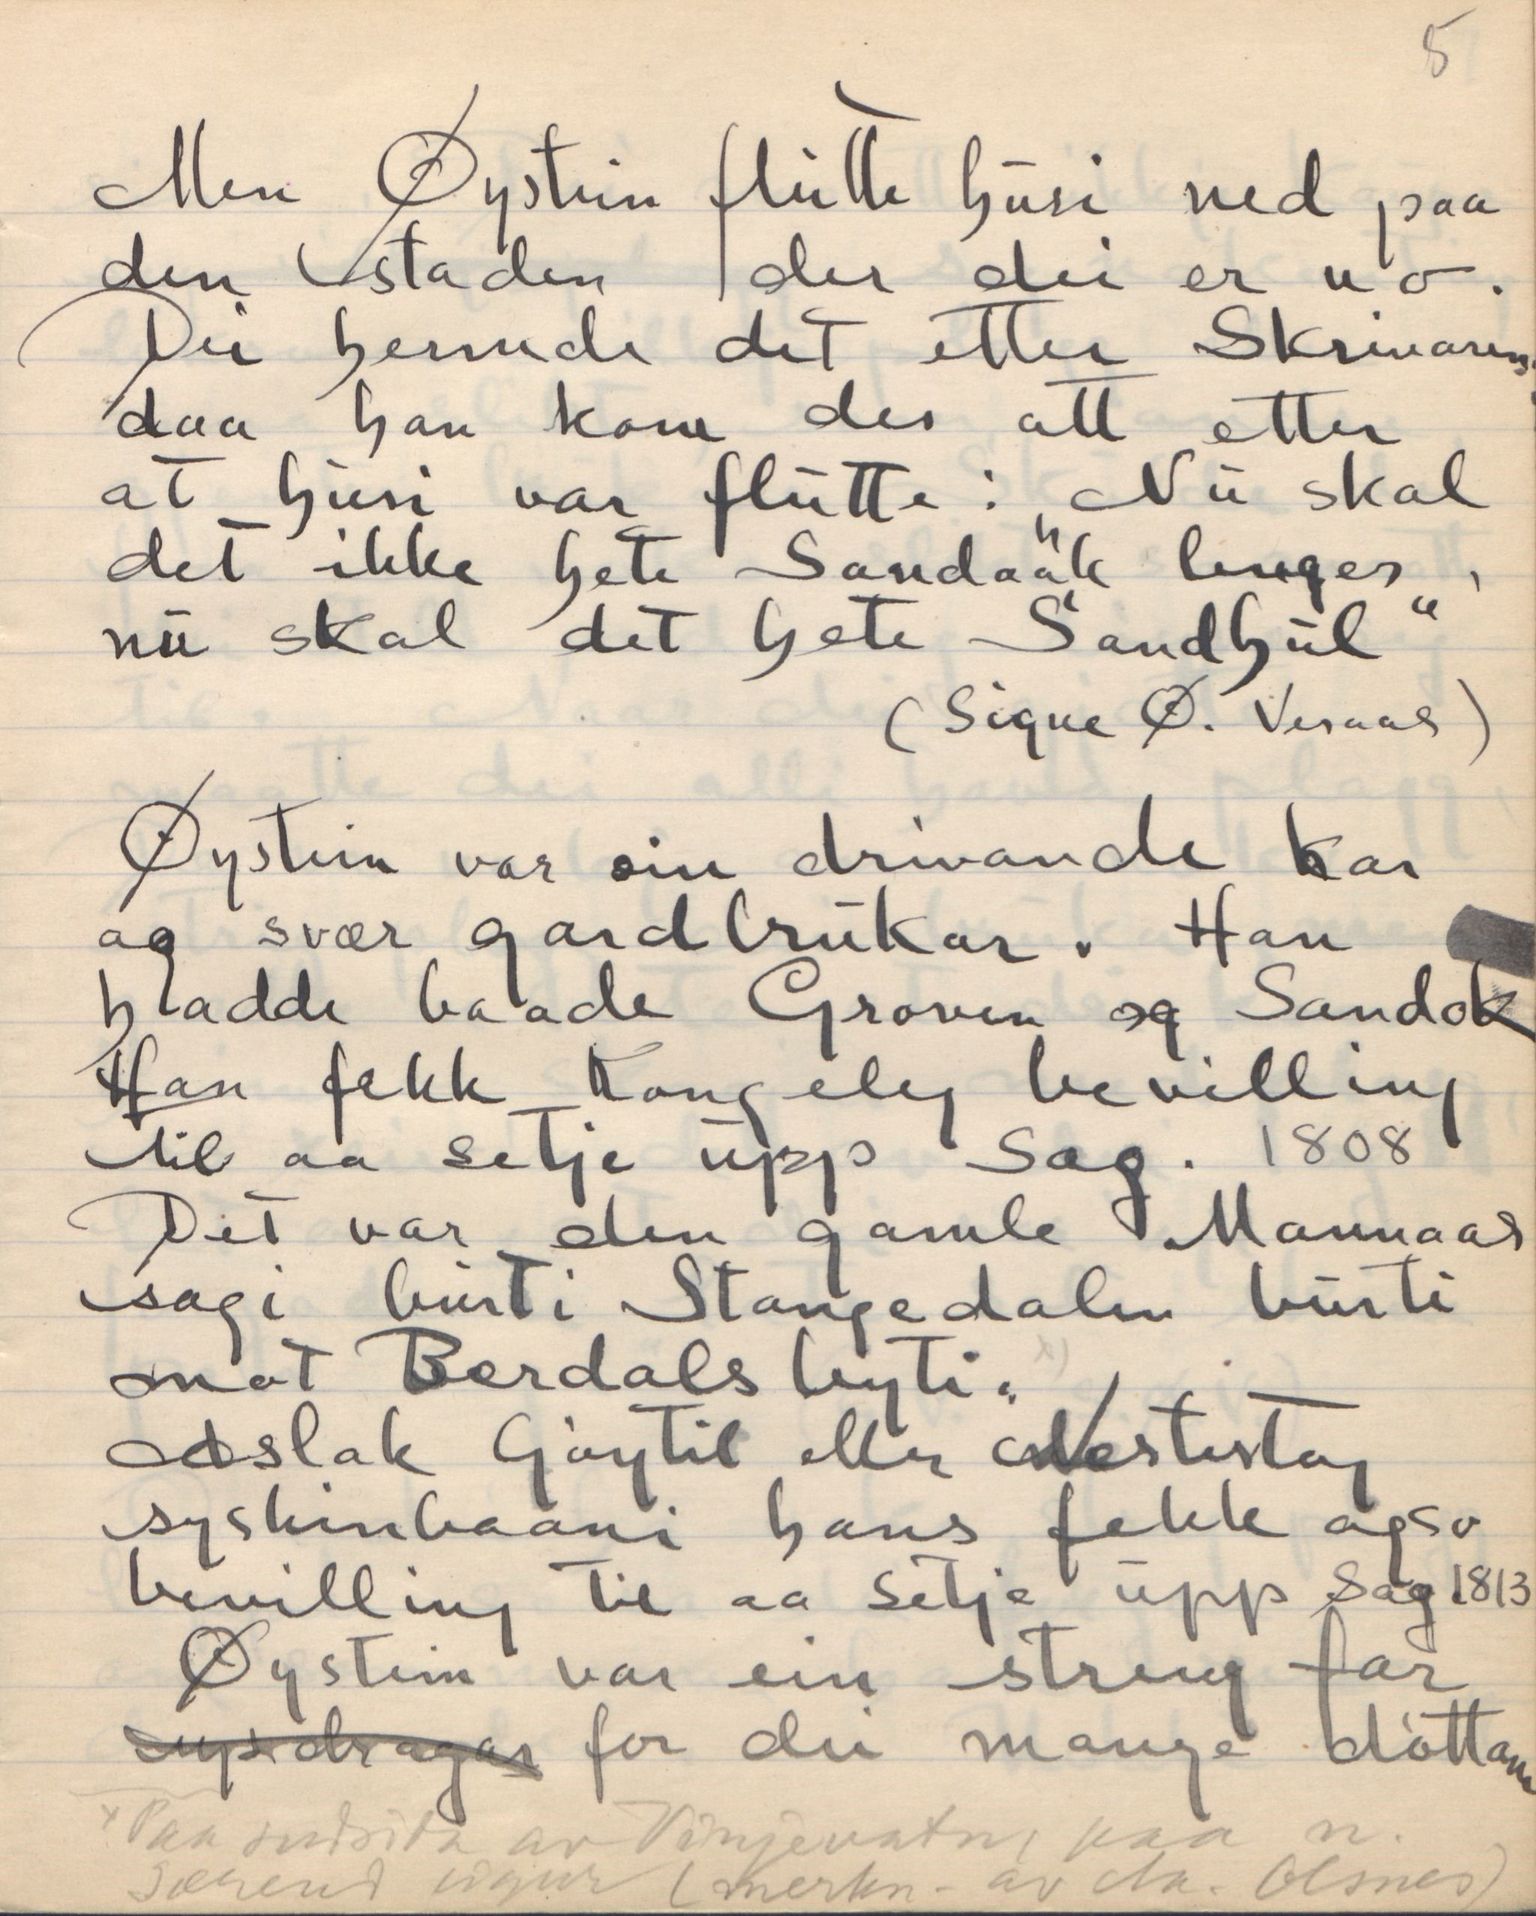 5
Men Øystein flutte husi ned paa
den staden der dei er no.
Dei hermde det etter Skrivaren
daa han kom der att etter
at husi var flutte: "Nu skal
det ikke hete Sandaak lenger,
nu skal det hete Sandhul"
(Signe Ø. Versaas)
Øystein var ein drivande kar
og svær gardbrukar. Han
hadde baade Groven og Sandok
Han fekk Kongeleg bevilling
til aa setje upp sag. 1808
Det var den gamle Mannaas
sagi burti Stangedalen burti
mot Berdalsbyti. x)
Aslak Gøytil eller Nestestog
syskinbaani hans fekk ogso
bevilling til aa setje upp sag 1813
Øystein var ein streng far
for dei mange døttane
x Paa sudsida av Vinjevatn, paa n.
(merkn. av Olsnes)